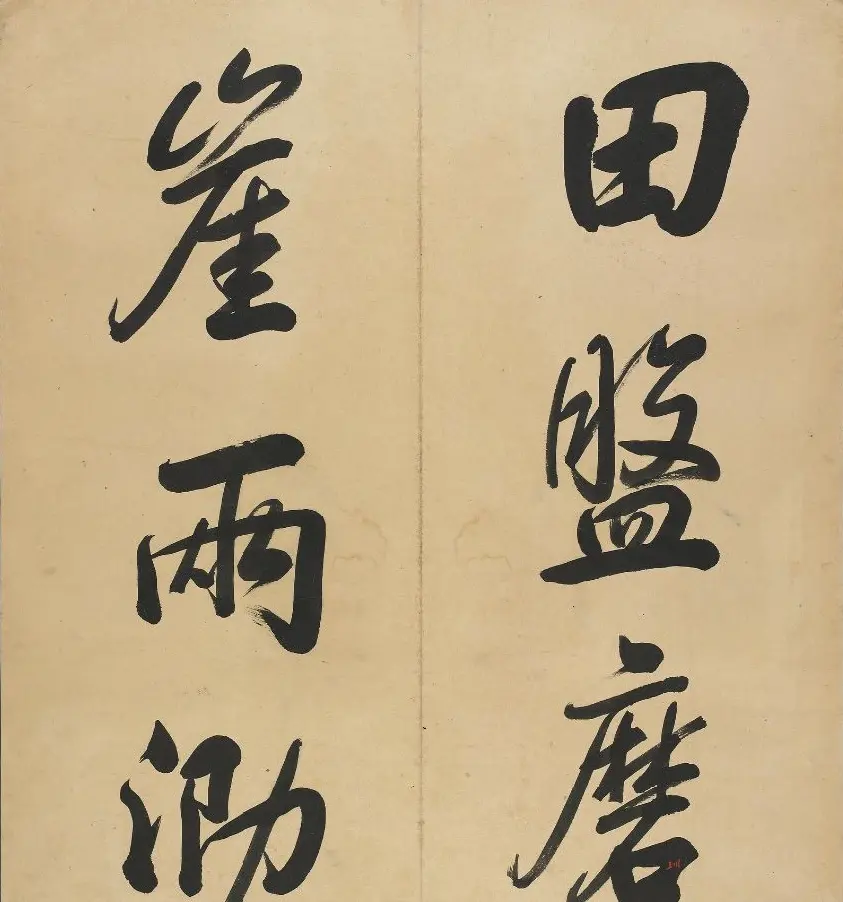 田盤磨
崖兩泐